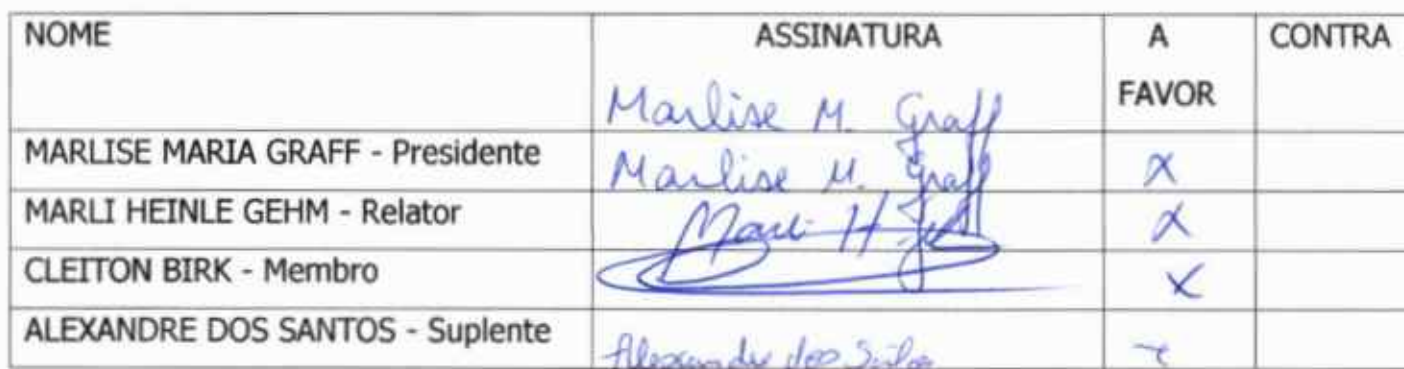 NOME ASSINATURA A FAVOR CONTRA
Marlise M. Graff
MARLISE MARIA GRAFF - Presidente Marlise M. Graff X
MARLI HEINLE GEHM - Relator Marli H. X
CLEITON BIRK - Membro X
ALEXANDRE DOS SANTOS - Suplente Alexandre dos